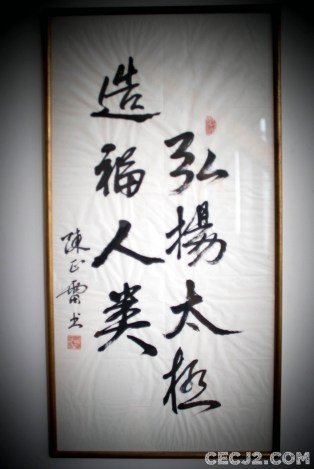 弘揚太極
造福人类
陳正雷书
CECJ2.COM